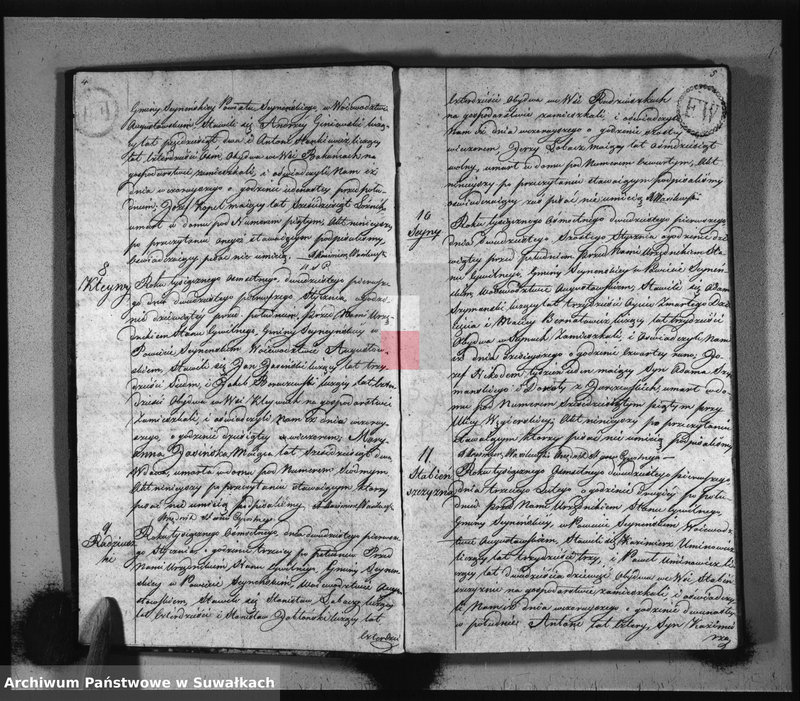 4
Gminy Seynenskiey Powiatu Seynenskiego, w Woiewodztwie
Augustowskiem, Stawili się Andrzey liczą-
cy lat pięćdziesiąt dwa i Antoni Stankiewicz liczący
lat czterdzieści Osm, Obydwa we Wsi na
gospodarstwie zamieszkali, i oświadczyli Nam iż
dnia wczorayszego o godzinie iedenastey przed połu-
dniem, Jozef maiący lat Sześćdziesiąt
umarł w domu pod Numerem piątym, Akt ninieyszy
po przeczytaniu onego stawaiącym podpisaliśmy,
Oświadczaiący pisać nie umieią
8
Kleyny
Roku tysiącznego osmsetnego dwudziestego pierwsze-
go dnia dwudziestego pierwszego Stycznia, o godzi-
nie dziewiątey przed południem, Przed Nami Urzę-
dnikiem Stanu Cywilnego, Gminy Seyneyskiey w
Powiecie Seynenskiem Woiewodztwie Augustow-
skiem, Stawili się Jan Zasinski liczący lat trzy-
dzieści Siem, i Jakub liczący lat czter-
dzieści Obydwa we Wsi Kleywach na gospodarstwie
Zamieszkali, i oświadczyli Nam iż dnia wczoray-
szego, o godzinie dziesiątey w wieczorem, Mary-
anna Zasinska, Maiąca lat Sześćdziesiąt dwa
Wdowa, umarła w domu pod Numerem Siodmym
Akt ninieyszy po przeczytaniu stawaiącym, ktorzy
pisać nie umieią podpisaliśmy,
Urzędnik Stanu Cywilnego
9
Radziusz
ki
Roku tysiącznego Osmsetnego, dnia dwudziestego pierwsze-
go Stycznia o godzinie trzeciey po południu Przed
Nami Urzędnikiem Stanu Cywilnego, Gminy Seynen-
skiey w Powiecie Seynenskiem, Woiewodztwie Augu-
stowskiem, Stawili się Stanisław liczący
lat czterdzieści i Stanisław Jabłonski liczący lat
czterdzie
5
czterdzieści Obydwa we Wsi Radziuszkach
na gospodarstwie zamieszkali, i oświadczyli
Nam iż dnia wczorayszego o godzinie szostey
wieczorem, Jerzy maiący lat ośmdziesiąt
wolny, umarł w domu pod Numerem czwartym, Akt
ninieyszy po przeczytaniu stawaiącym podpisaliśmy
oświadczaiący zaś pisać nie umieią
FW
10
Seyny
Roku tysiącznego Osmsetnego dwudziestego pierwszego
dnia dwudziestego Szostego Stycznia o godzinie dzie-
wiątey przed południem Przed Nami Urzędnikiem Sta-
nu Cywilnego, Gminy Seynenskiey w Powiecie Seynen-
skiem, Woiewodztwie Augustowskiem, Stawili się Adam
Szymanski, liczący lat trzydzieści Oyciec Zmarłego Dzie-
cięcia i Maciey Bernatowicz liczący lat trzydzieści
Obydwa w Seynach Zamieszkali, i Oświadczyli Nam
iż dnia dzisieyszego o godzinie czwartey rano, Jo-
zef Nikodem tydzien ieden maiący Syn Adama Szy-
manskiego i Doroty z umarł w do-
mu pod Numerem Sześćdziesiątym piątym przy
Ulicy Akt ninieyszy po przeczytaniu
stawaiącym ktorzy pisać nie umieią podpisaliśmy,
Urzędnik Stanu Cywilnego
11
Stabien
szczyzna
Roku tysiącznego Osmsetnego dwudziestego pierwszego
dnia trzeciego Lutego o godzinie drugiey po połu-
dniu przed Nami Urzędnikiem Stanu Cywilnego
Gminy Seynenskiey, w Powiecie Seynenskiem Woiewodz-
twie Augustowskiem, Stawili się Kazimierz Uminowicz
liczący lat trzydzieści trzy, i Paweł Uminowicz li-
czący lat dwadzieścia dziewięć Obydwa we Wsi Stabien-
szczyznie na gospodarstwie zamieszkali, i oświadczy-
li Nam iż dnia wczorayszego o godzinie dwunastey
w południe Antoni lat cztery, Syn Kazimie
rza
Archiwum Państwowe w Suwałkach